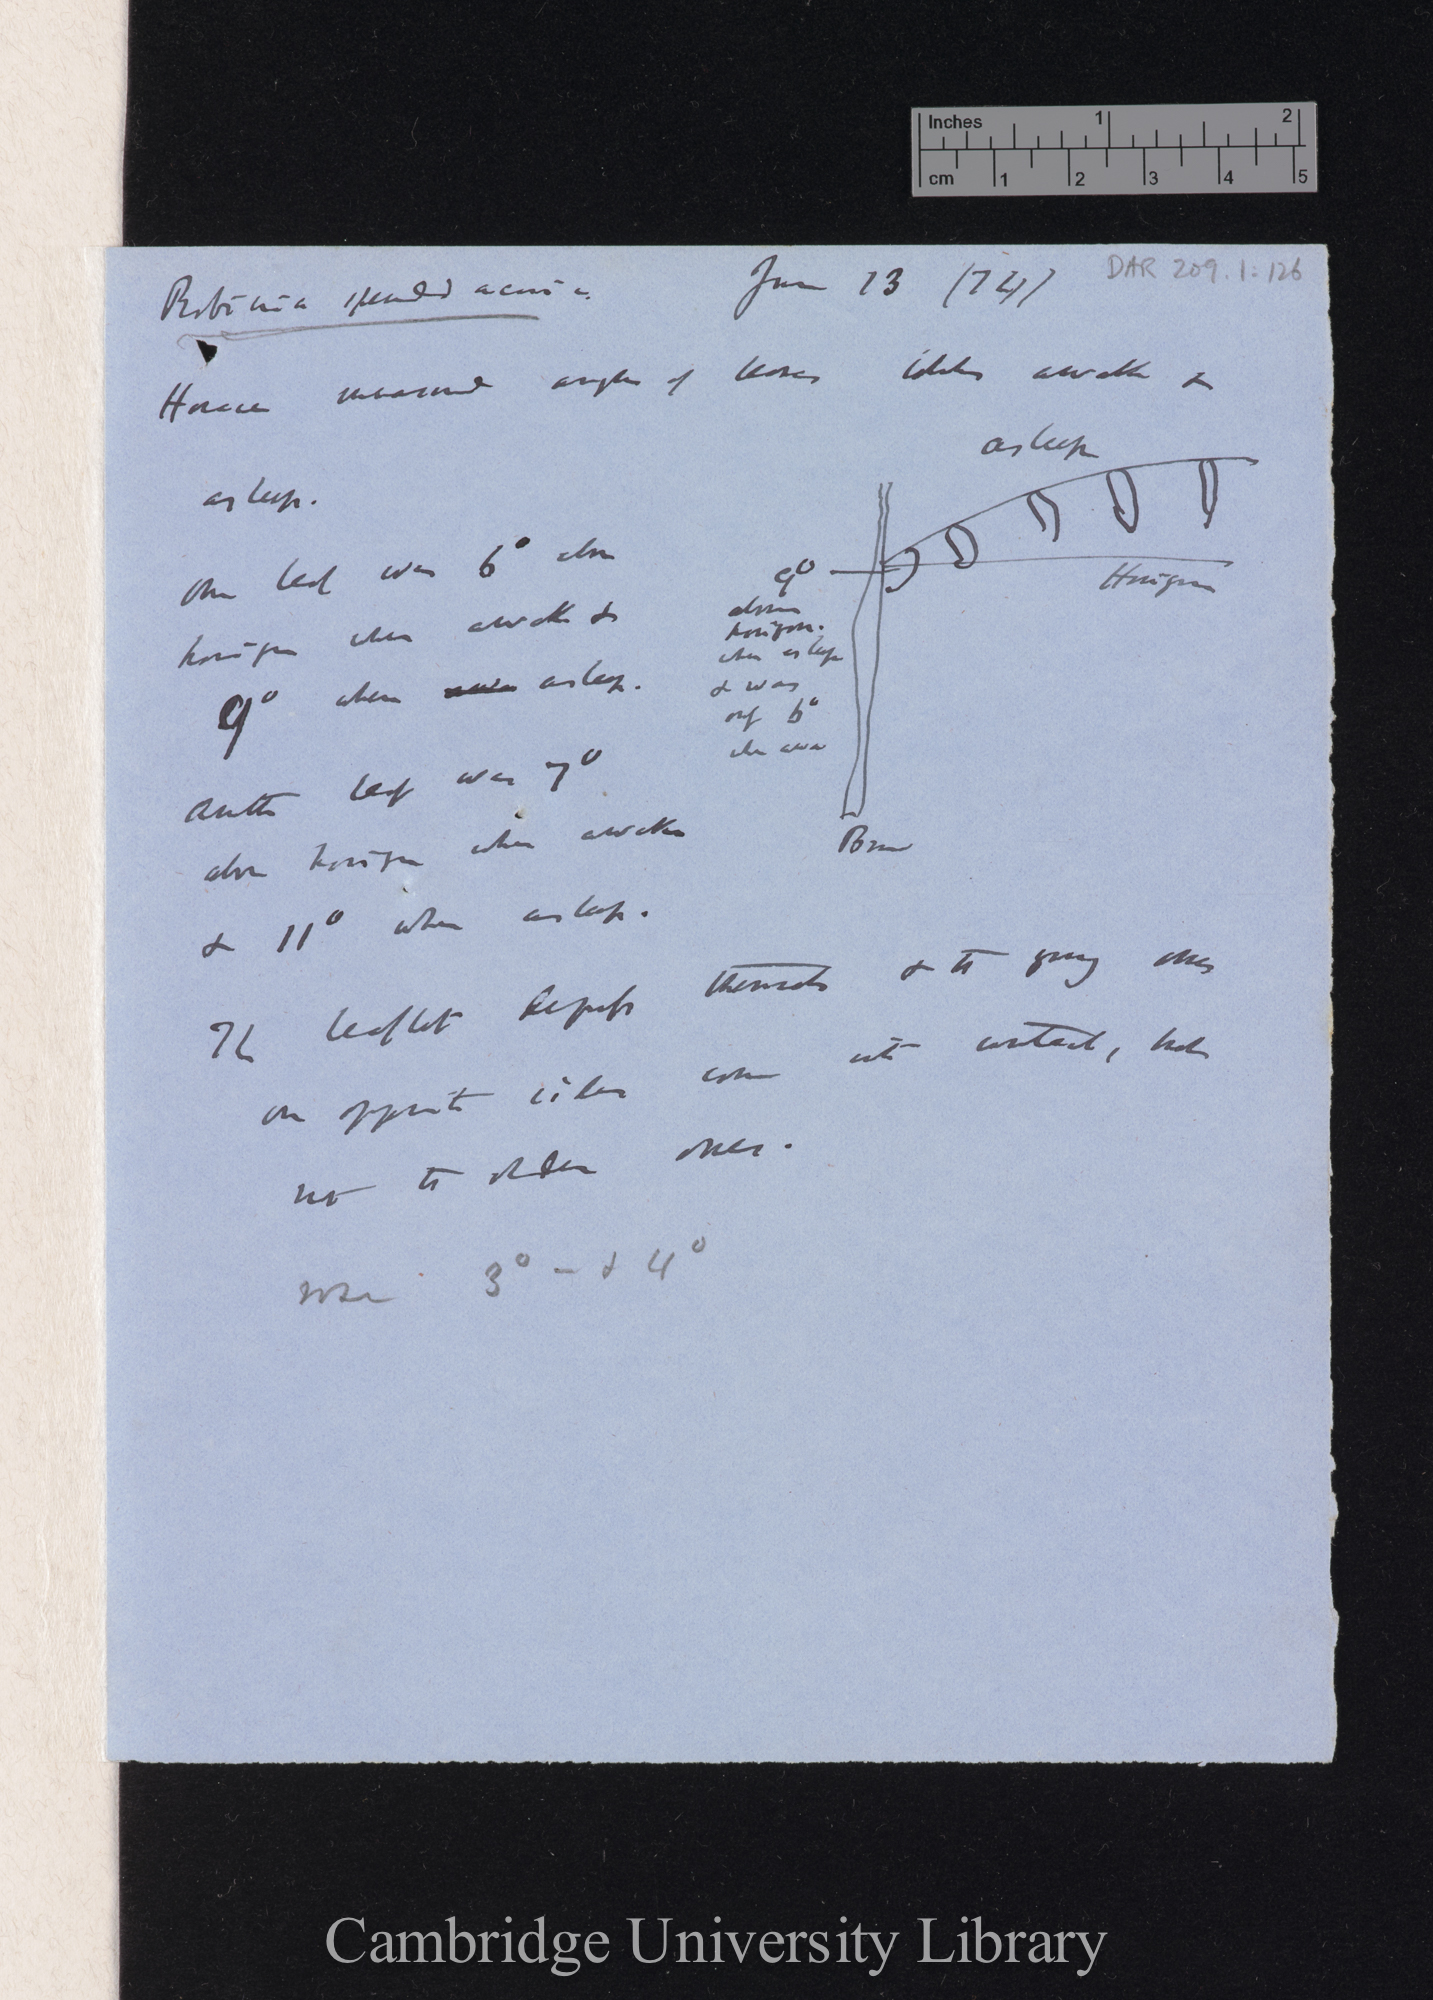 Inches 1 2
cm 1 2 3 4 5
DAR 209.1:126
Robinia pseud acacia. June 13 (74)
Horace measured angles of leaves awake &
asleep.
asleep
Horizon
9°
above
horizon.
when asleep
& was
only 6°
when awake
One leaf was 6° above
horizon when awake &
9° when asleep.
Another leaf was 7°
above horizon when awake
& 11° when asleep.
The leaflets depress themselves & the young ones
on opposite sides come into contact, but
not the older ones.
3° – & 4°
Cambridge University Library